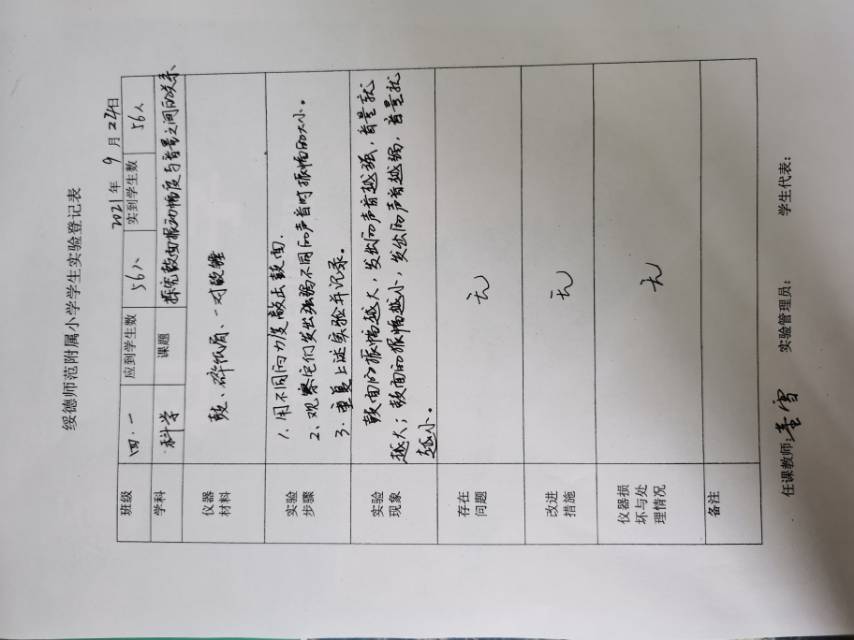 绥德师范附属小学学生实验登记表
2021年 9 月 24日
班级 四·一 应到学生数 56人 实到学生数 56人
学科 科学 课题 探究鼓面振动幅度与音量之间的关系
仪器
材料
鼓、碎纸屑、一对鼓锤
实验
步骤
1. 用不同的力度敲击鼓面.
2、观察它们发出强弱不同的声音时振幅的大小。
3. 重复上述实验并记录。
实验
现象
鼓面的振幅越大，发出的声音越强，音量就
越大；鼓面的振幅越小，发出的声音越弱，音量就
越小。
存在
问题
无
改进
措施
无
仪器损
坏与处
理情况
无
备注
任课教师: 雪 实验管理员: 学生代表: